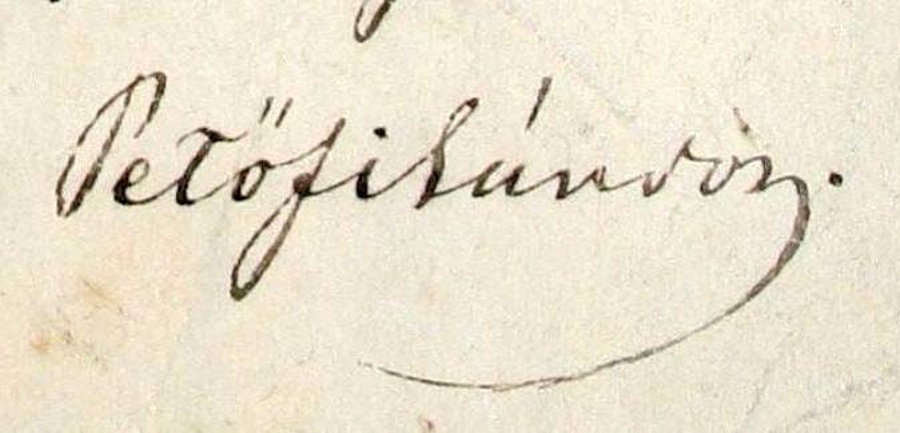 Petőfi Sándor.